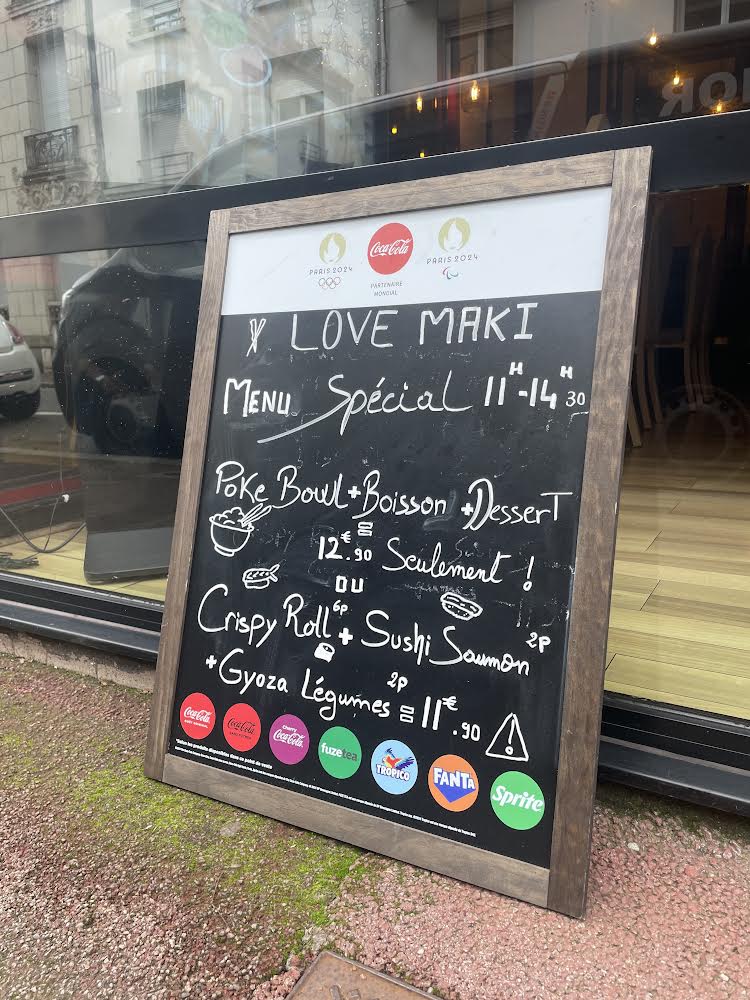 PARIS 2024
Coca-Cola
PARIS 2024
PARTENAIRE
MONDIAL
LOVE MAKI
MENU Spécial 11H-14H30
Poke Bowl+Boisson +Dessert
=
12€.90 Seulement !
OU
Crispy Roll 6p + Sushi Saumon 2P
+Gyoza Légumes 2P = 11€.90
Coca-Cola
Coca-Cola
Cherry
Coca-Cola
fuzetea
TROPICO
FANTA
Sprite